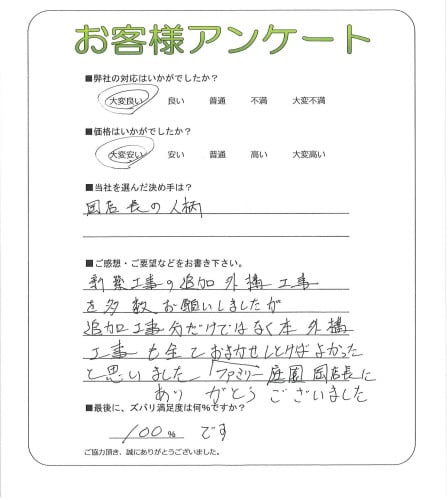 お客様アンケート
■弊社の対応はいかがでしたか？
大変良い 良い 普通 不満 大変不満
■価格はいかがでしたか？
大変安い 安い 普通 高い 大変高い
■当社を選んだ決め手は？
岡店長の人柄
■ご感想・ご要望などをお書き下さい。
新築工事の追加外構工事
を多数お願いしましたが
追加工事分だけではなく本外構
工事も全ておまかせしとけばよかった
と思いました ファミリー庭園 岡店長に
ありがとうございました
■最後に、ズバリ満足度は何%ですか？
100% です
ご協力頂き、誠にありがとうございました。